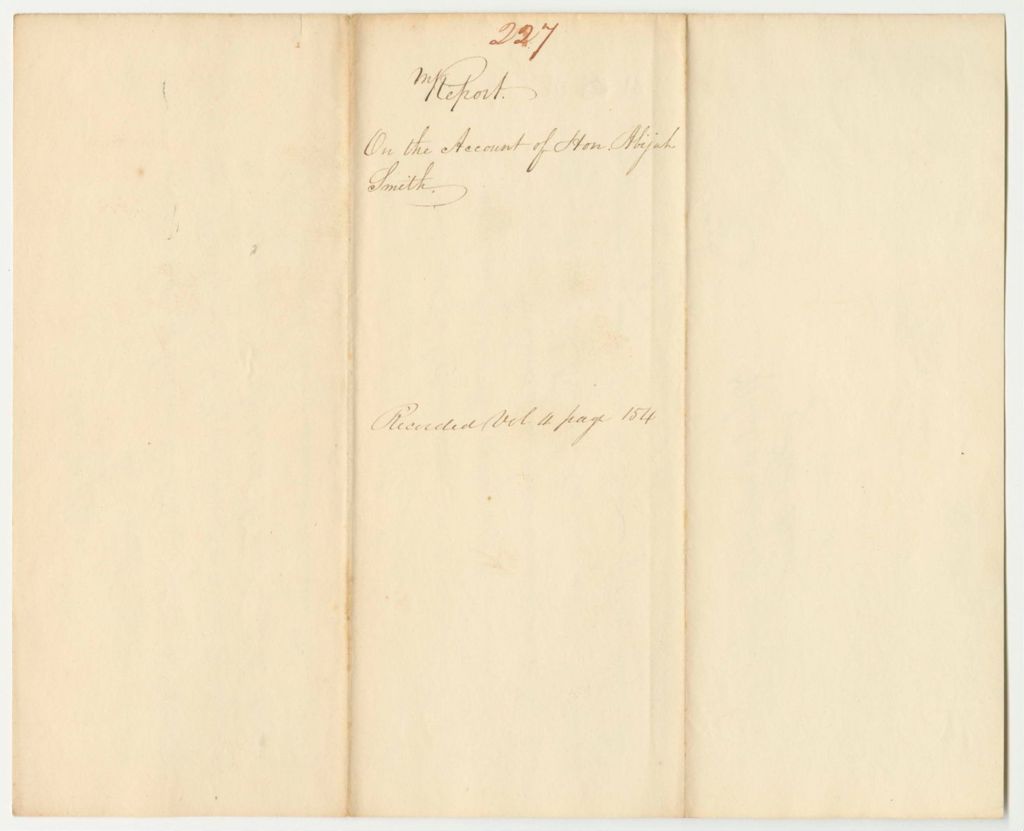 227
Report.
On the Account of Hon. Abijah
Smith.
Recorded Vol 4 page 154